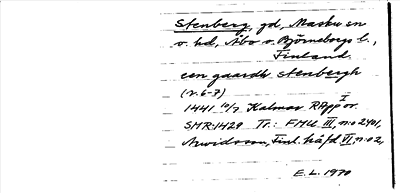 Stenberg, gd, Masku sn
o. hd, Åbo o. Björneborgs l.,
Finland.
een gaardh stenbergh
(r. 6-7)
1441 10/7 Kalmar RApp or. I
SMR:1429 Tr.: FMU III, n:o 2401,
Arwidsson, Finl. häfd VI, n:o 2,
E.L. 1970